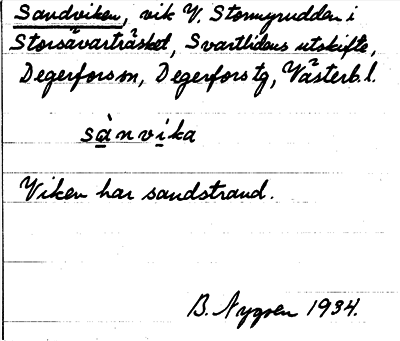 Sandviken, vik V. Stormyrudden i
Storsävarträsket, Svartlidens utskifte,
Degerfors sn, Degerfors tg, Västerb. l.
sànvika
Viken har sandstrand.
B. Nygren 1934.